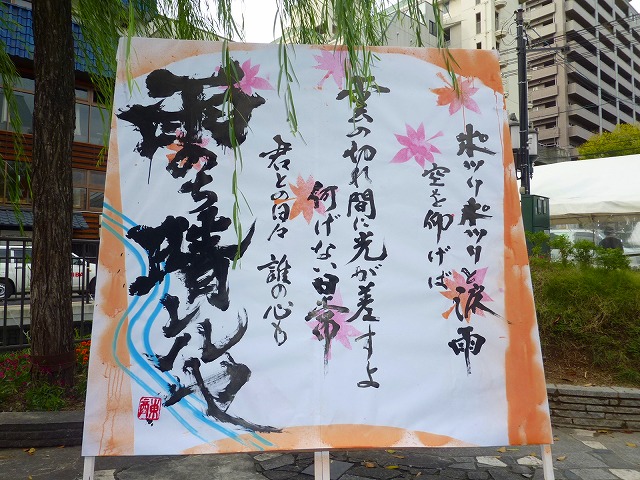 ポツリポツリと涙雨
空を仰げば
雲の切れ間に光が差すよ
何げない日常
君との日々 誰の心も
雨のち晴レルヤ